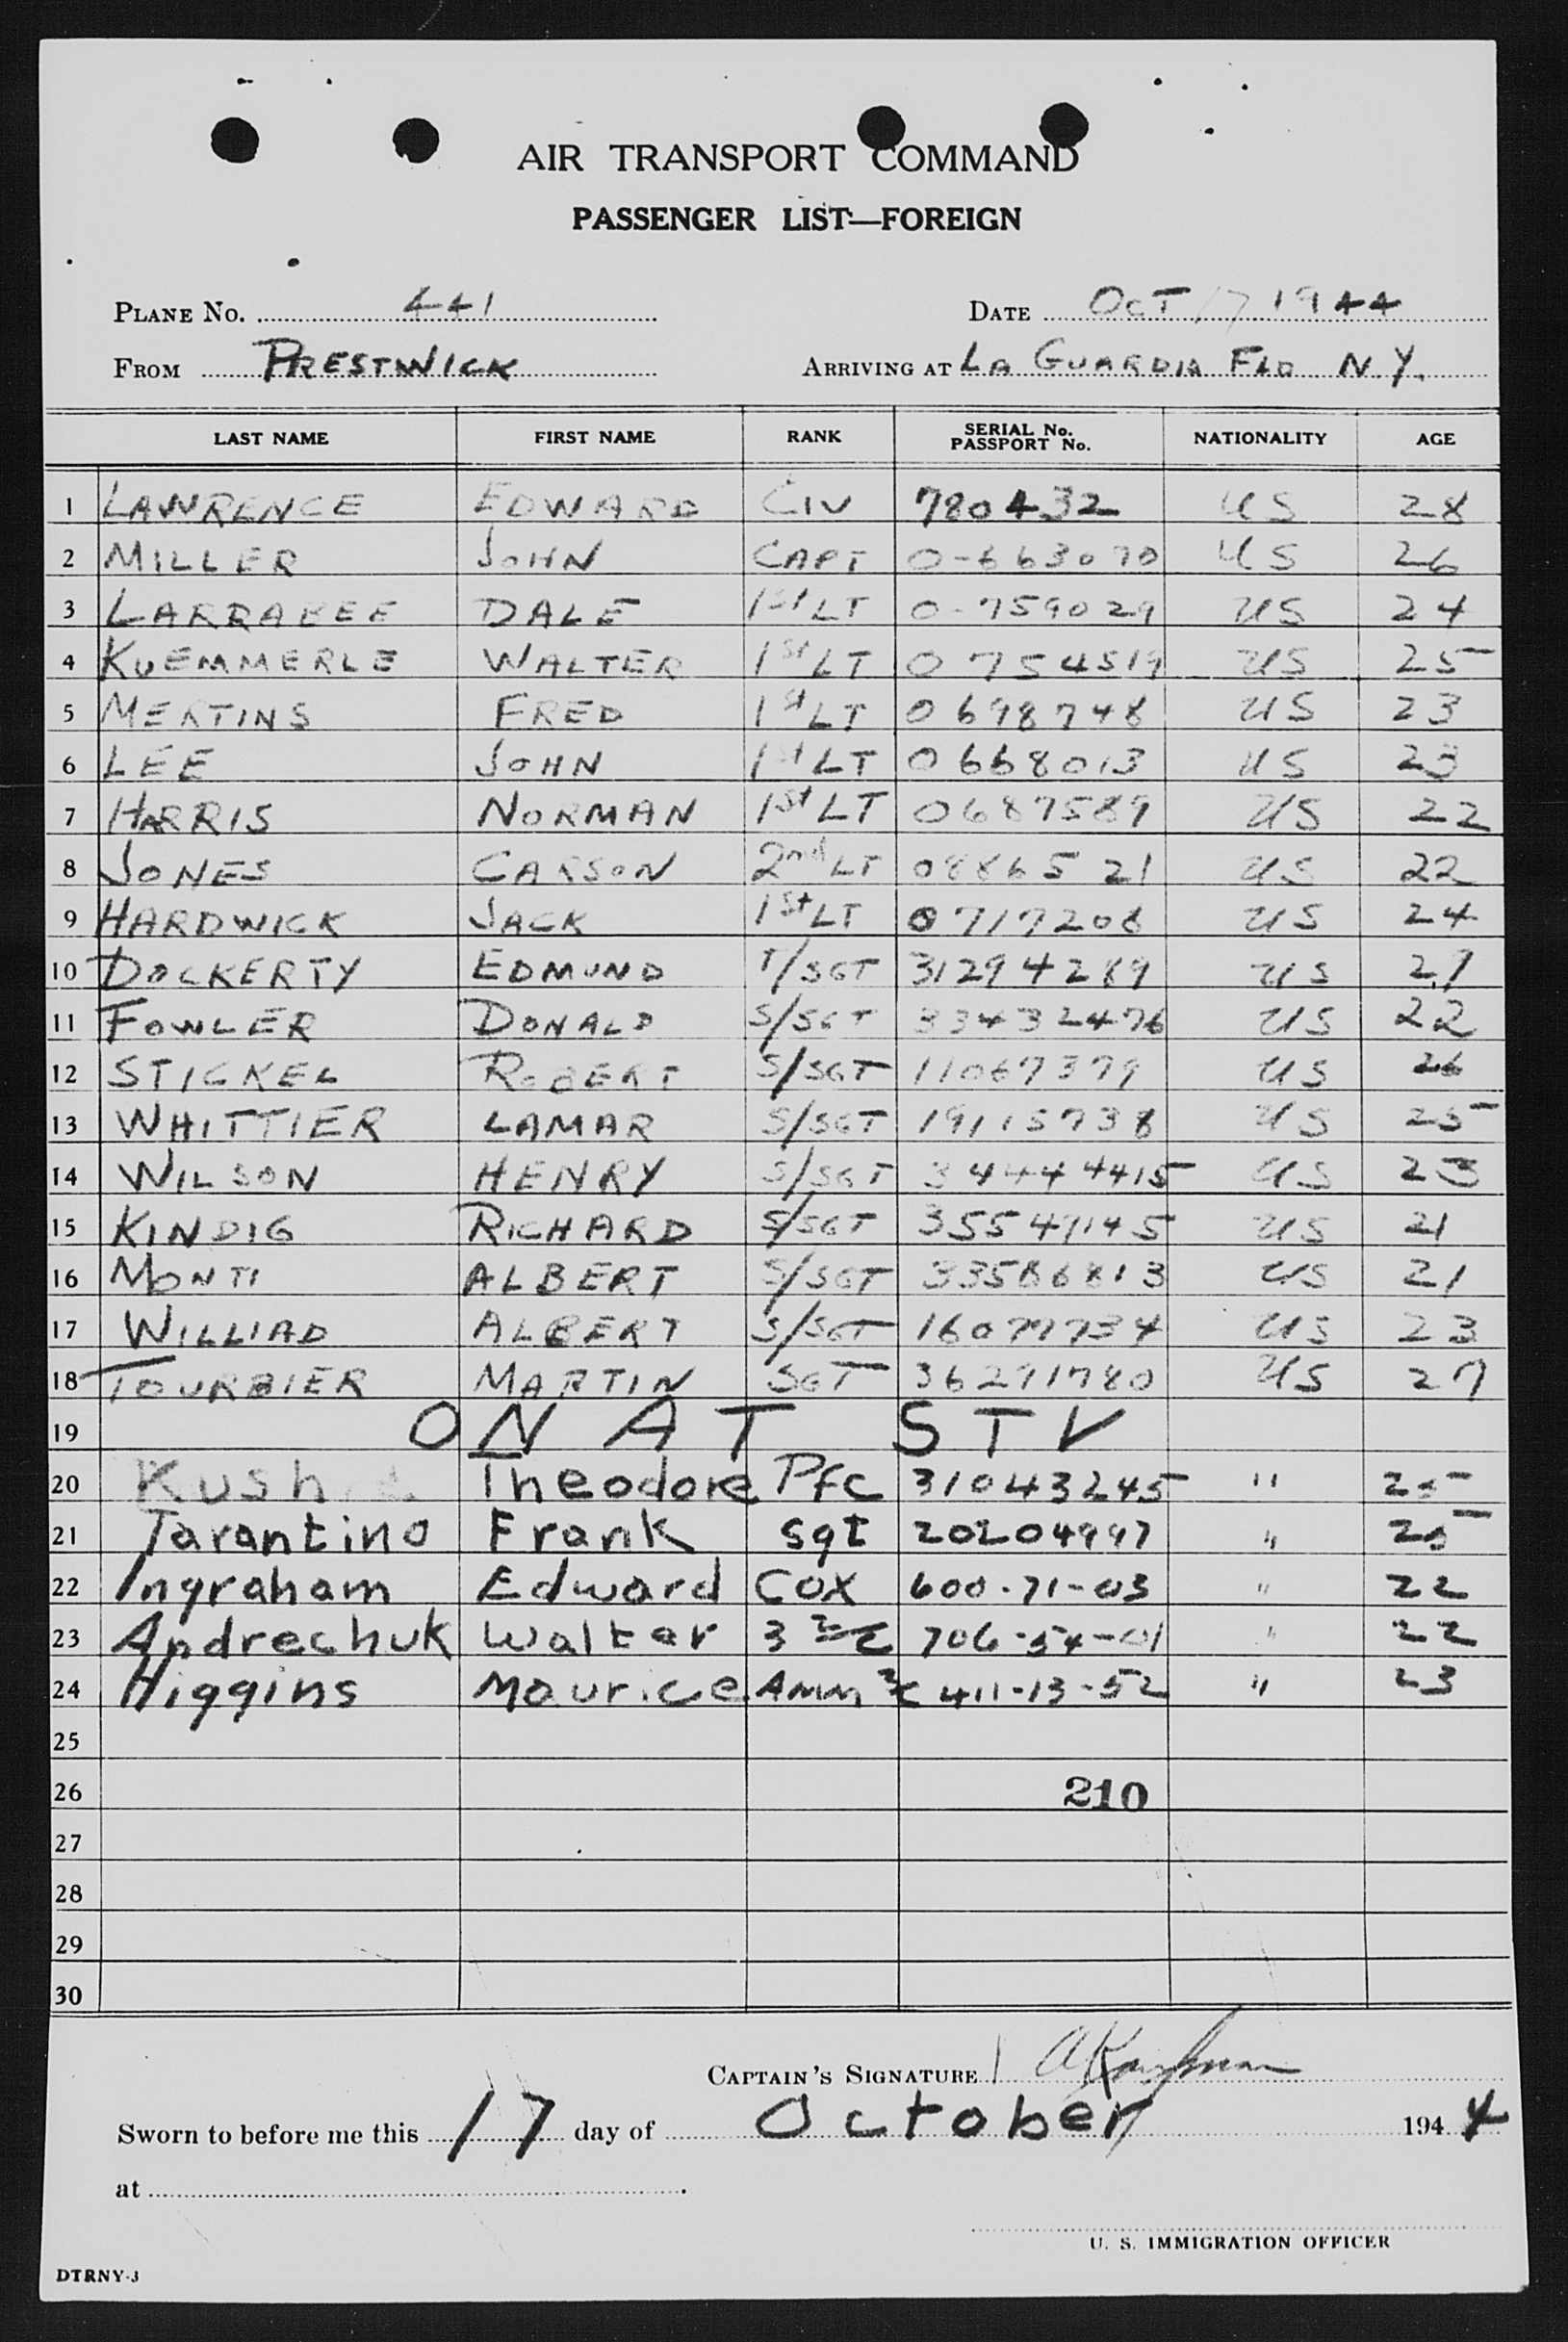 AIR TRANSPORT COMMAND
PASSENGER LIST—FOREIGN
PLANE No. 441 DATE OCT 17 1944
FROM PRESTWICK ARRIVING AT LA GUARDIA FLD N.Y.
LAST NAME FIRST NAME RANK SERIAL No. PASSPORT No. NATIONALITY AGE
1 LAWRENCE EDWARD CIV 780432 US 28
2 MILLER JOHN CAPT O-663070 US 26
3 LARRABEE DALE 1st LT O-759029 US 24
4 KUEMMERLE WALTER 1st LT O 754519 US 25
5 MERTINS FRED 1st LT O 698748 US 23
6 LEE JOHN 1st LT O 668013 US 23
7 HARRIS NORMAN 1st LT O687589 US 22
8 JONES CARSON 2nd LT O886521 US 22
9 HARDWICK JACK 1st LT O717208 US 24
10 DOCKERTY EDMUND T/SGT 31294289 US 29
11 FOWLER DONALD S/SGT 33432476 US 22
12 STICKEL ROBERT S/SGT 11067379 US 26
13 WHITTIER LAMAR S/SGT 19115738 US 25
14 WILSON HENRY S/SGT 34444415 US 23
15 KINDIG RICHARD S/SGT 35549145 US 21
16 MONTI ALBERT S/SGT 33586813 US US 21
17 WILLIAD ALBERT S/SGT 16077734 US 23
18 TOURBIER MARTIN SGT 36291780 US 27
19 ON AT STV
20 Kush Theodore Pfc 31043245 " 25
21 Tarantino Frank Sgt 20204997 " 25
22 Ingraham Edward COX 600-71-03 " 22
23 Andrechuk Walter 706-54-01 " 22
24 Higgins Maurice AMM 2/c 411-13-52 " 23
25
26 210
27
28
29
30
CAPTAIN'S SIGNATURE
Sworn to before me this 17 day of October 1944
at
U. S. IMMIGRATION OFFICER
DTRNY-3